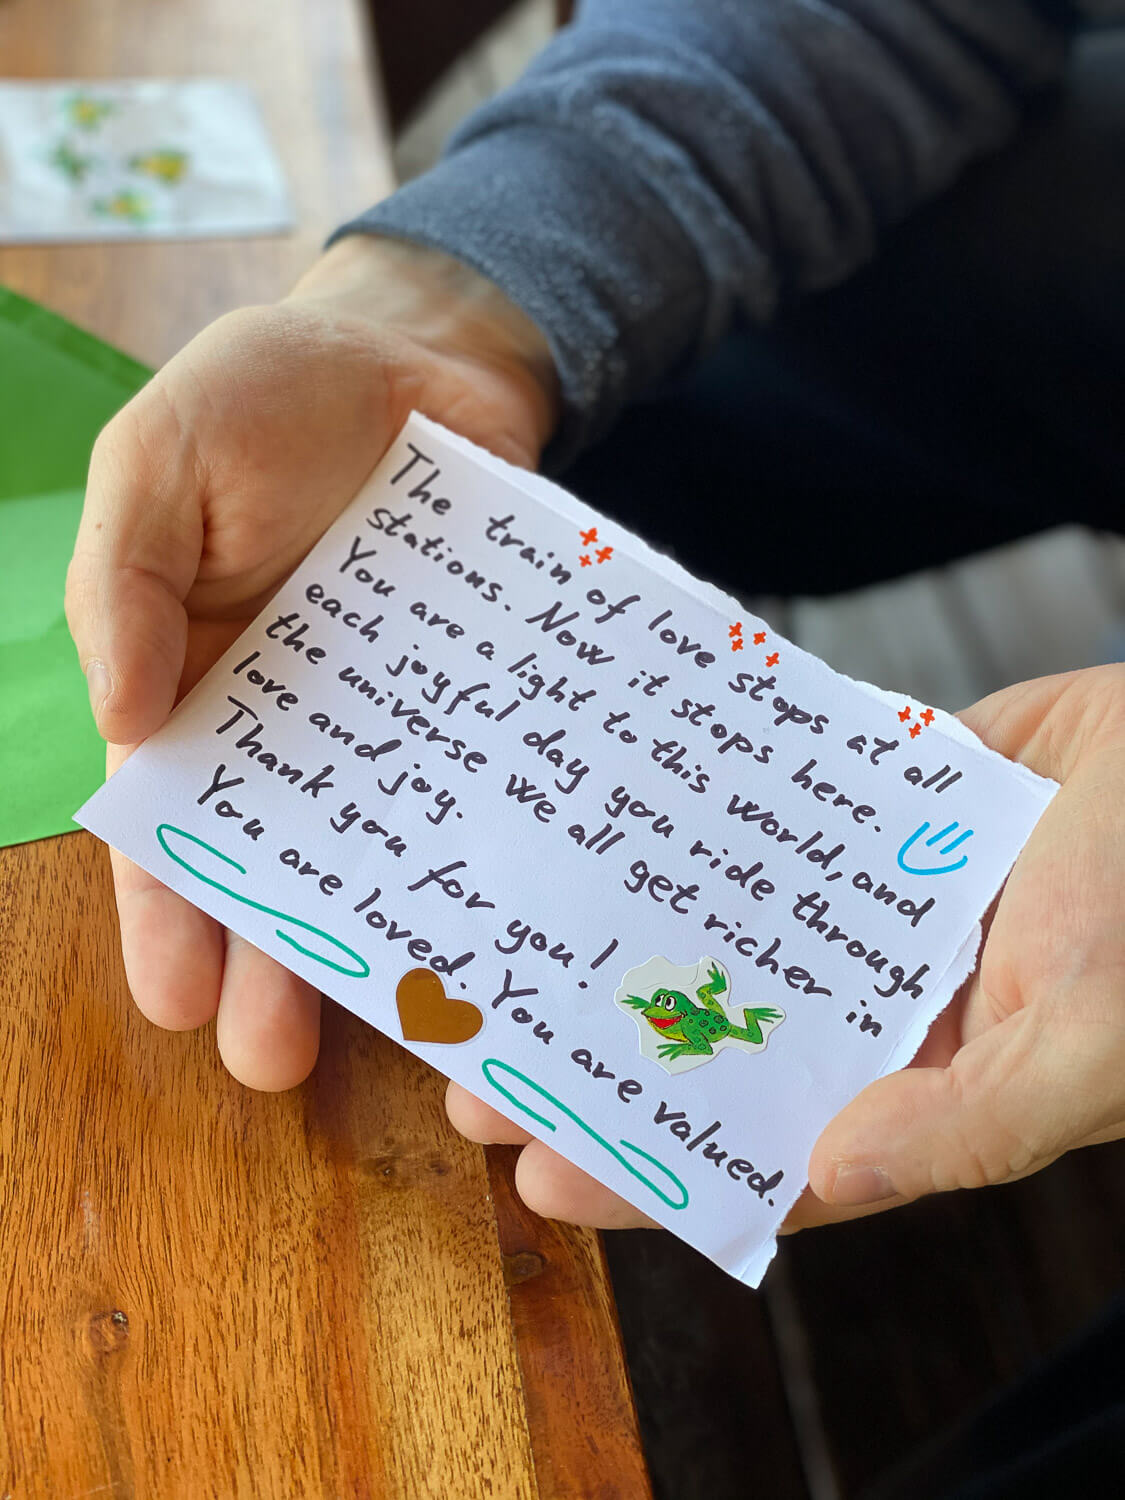 The train of love stops at all
stations. Now it stops here.
You are a light to this world, and
each joyful day you ride through
the universe we all get richer in
love and joy.
Thank you for you!
You are loved. You are valued.